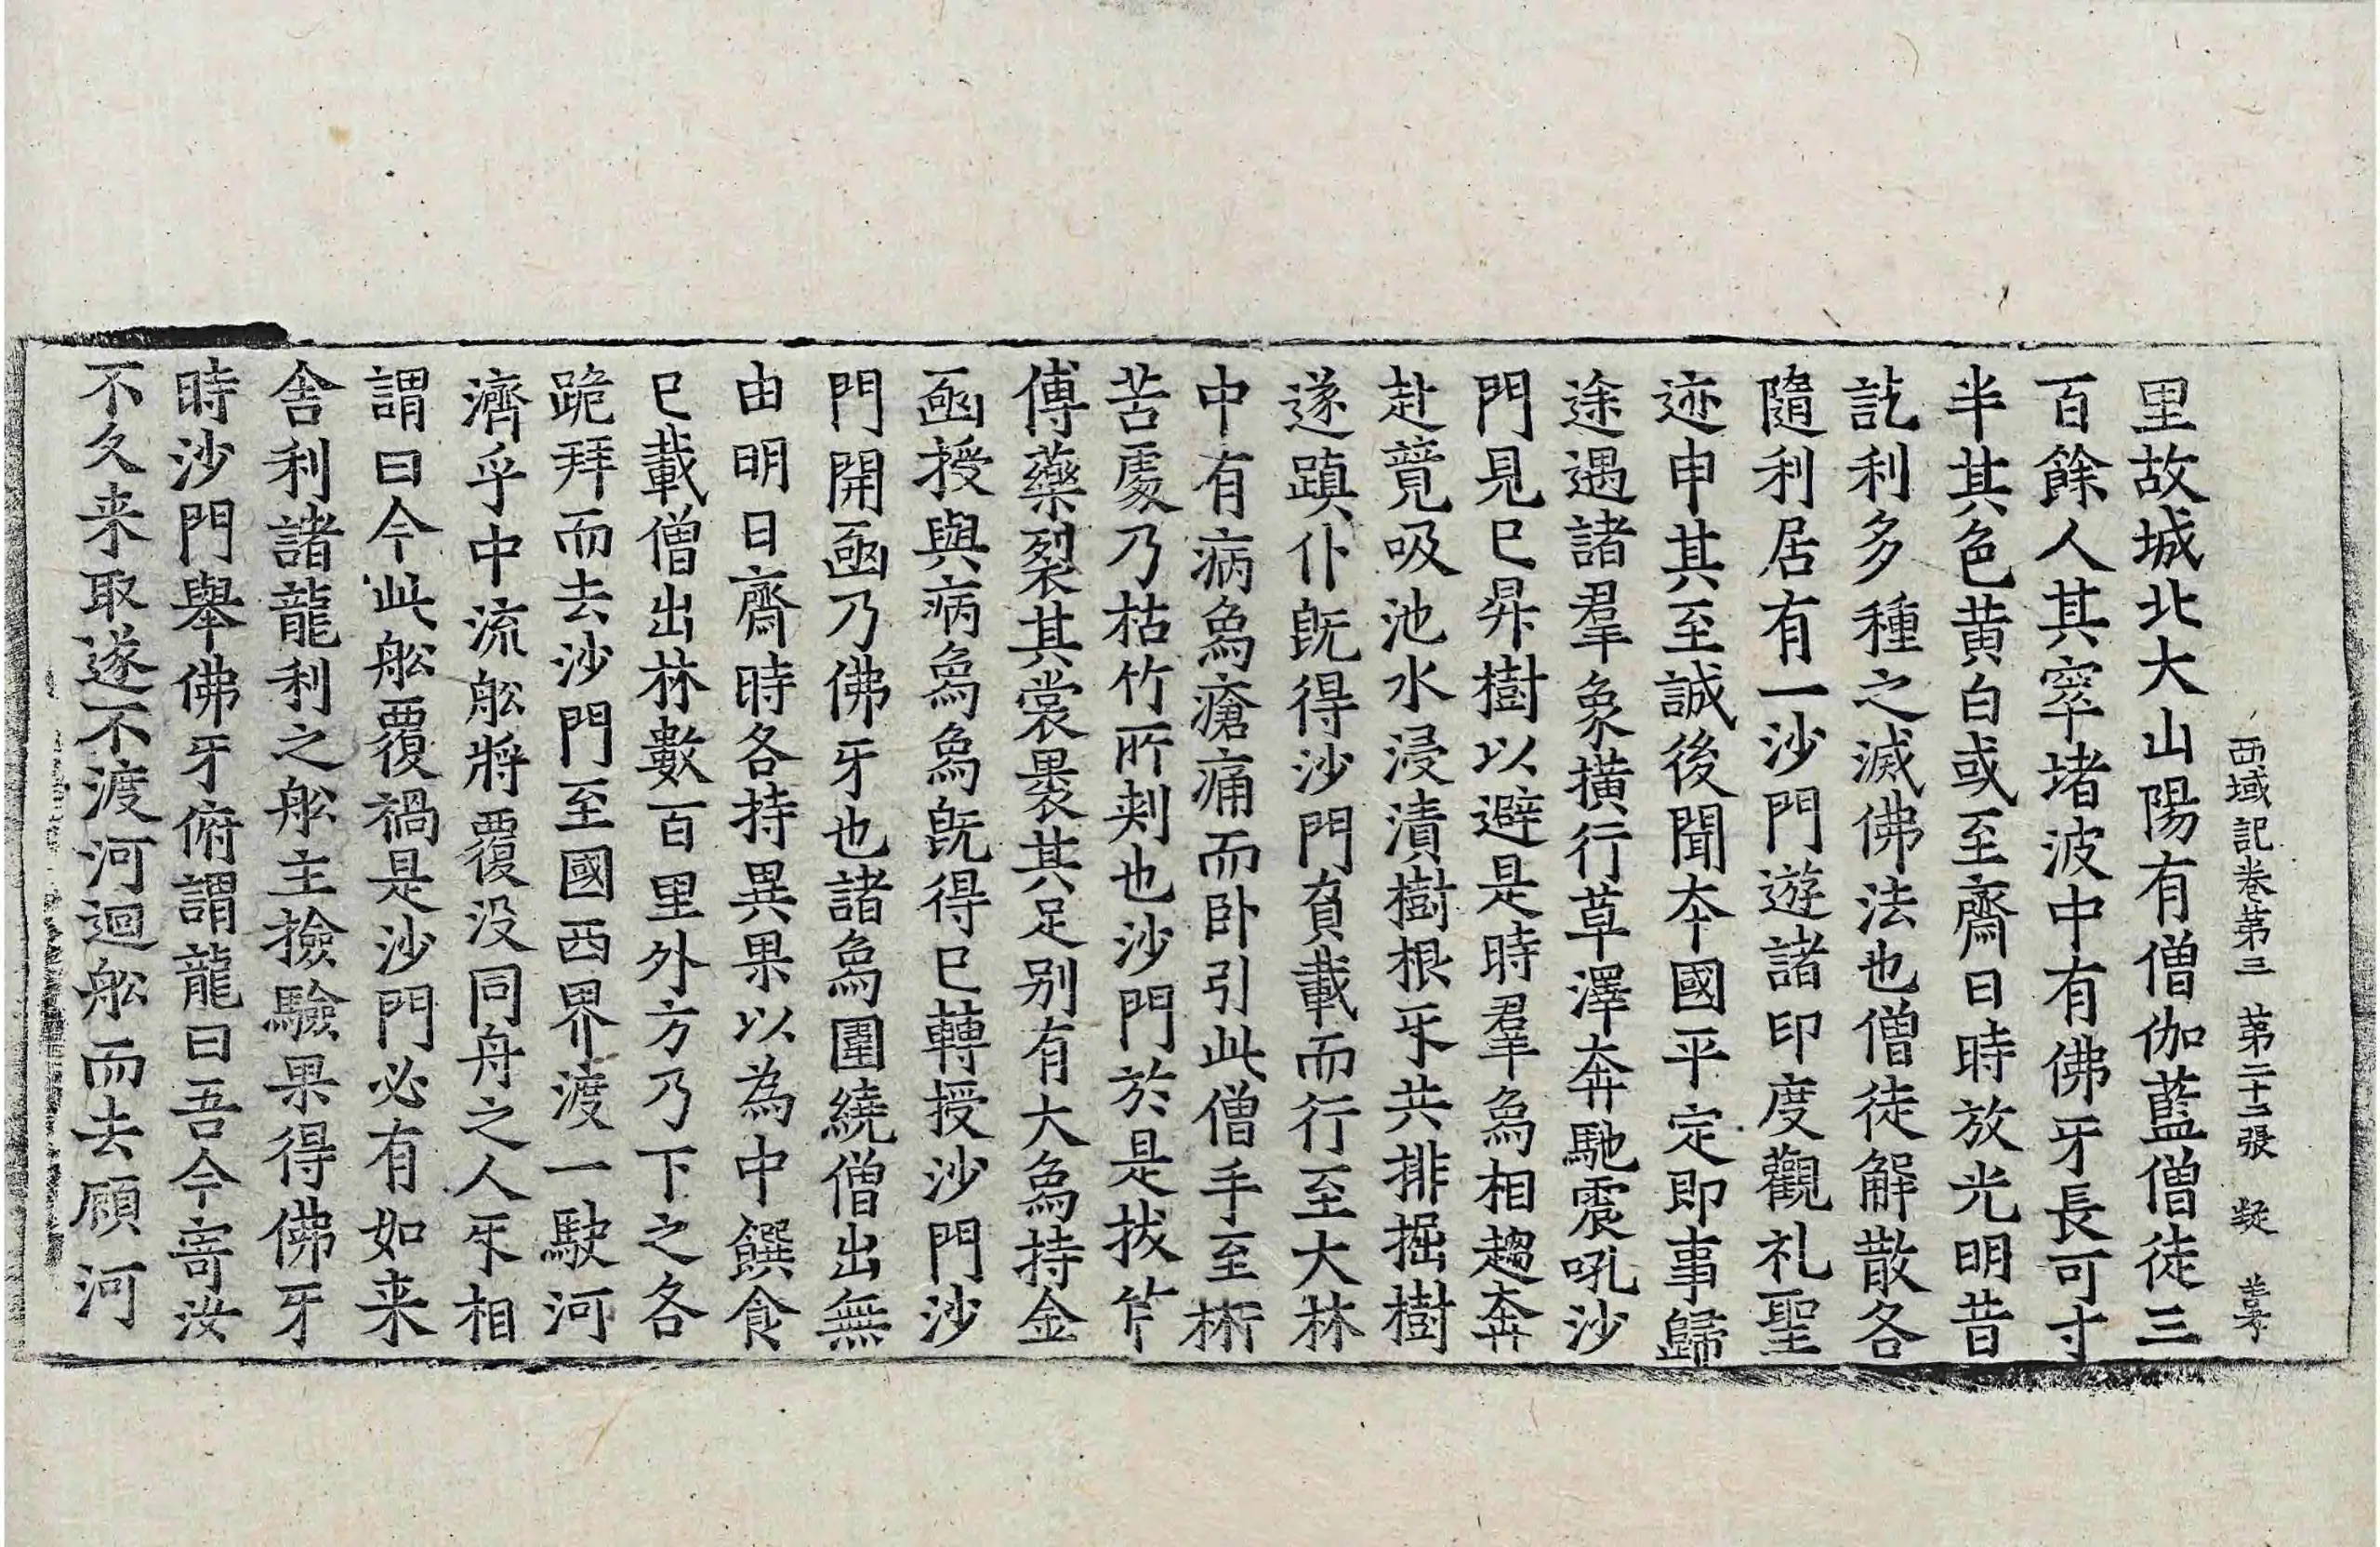 西域記卷第三 第二十二張 凝
里故城北大山陽有僧伽藍僧徒三
百餘人其窣堵波中有佛牙長可寸
半其色黄白或至齋日時放光明昔
訖利多種之滅佛法也僧徒解散各
隨利居有一沙門遊諸印度觀礼聖
迹申其至誠後聞夲國平定即事歸
途遇諸羣象橫行草澤奔馳震吼沙
門見已昇樹以避是時羣象相趨奔
赴競吸池水浸漬樹根㸦共排掘樹
遂蹎仆旣得沙門負載而行至大林
中有病象瘡痛而卧引此僧手至㭐
苦處乃枯竹所刺也沙門於是拔竹
傅藥裂其裳裹其足别有大象持金
凾授與病象象旣得已轉授沙門沙
門開凾乃佛牙也諸象圍繞僧出無
由明日齋時各持異果以為中饌食
已載僧出林數百里外方乃下之各
跪拜而去沙門至國西界渡一駛河
濟乎中流舩將覆没同舟之人㸦相
謂曰今此舩覆禍是沙門必有如来
舍利諸龍利之舩主撿驗果得佛牙
時沙門舉佛牙俯謂龍曰吾今寄汝
不久来取遂不渡河迴舩而去顧河